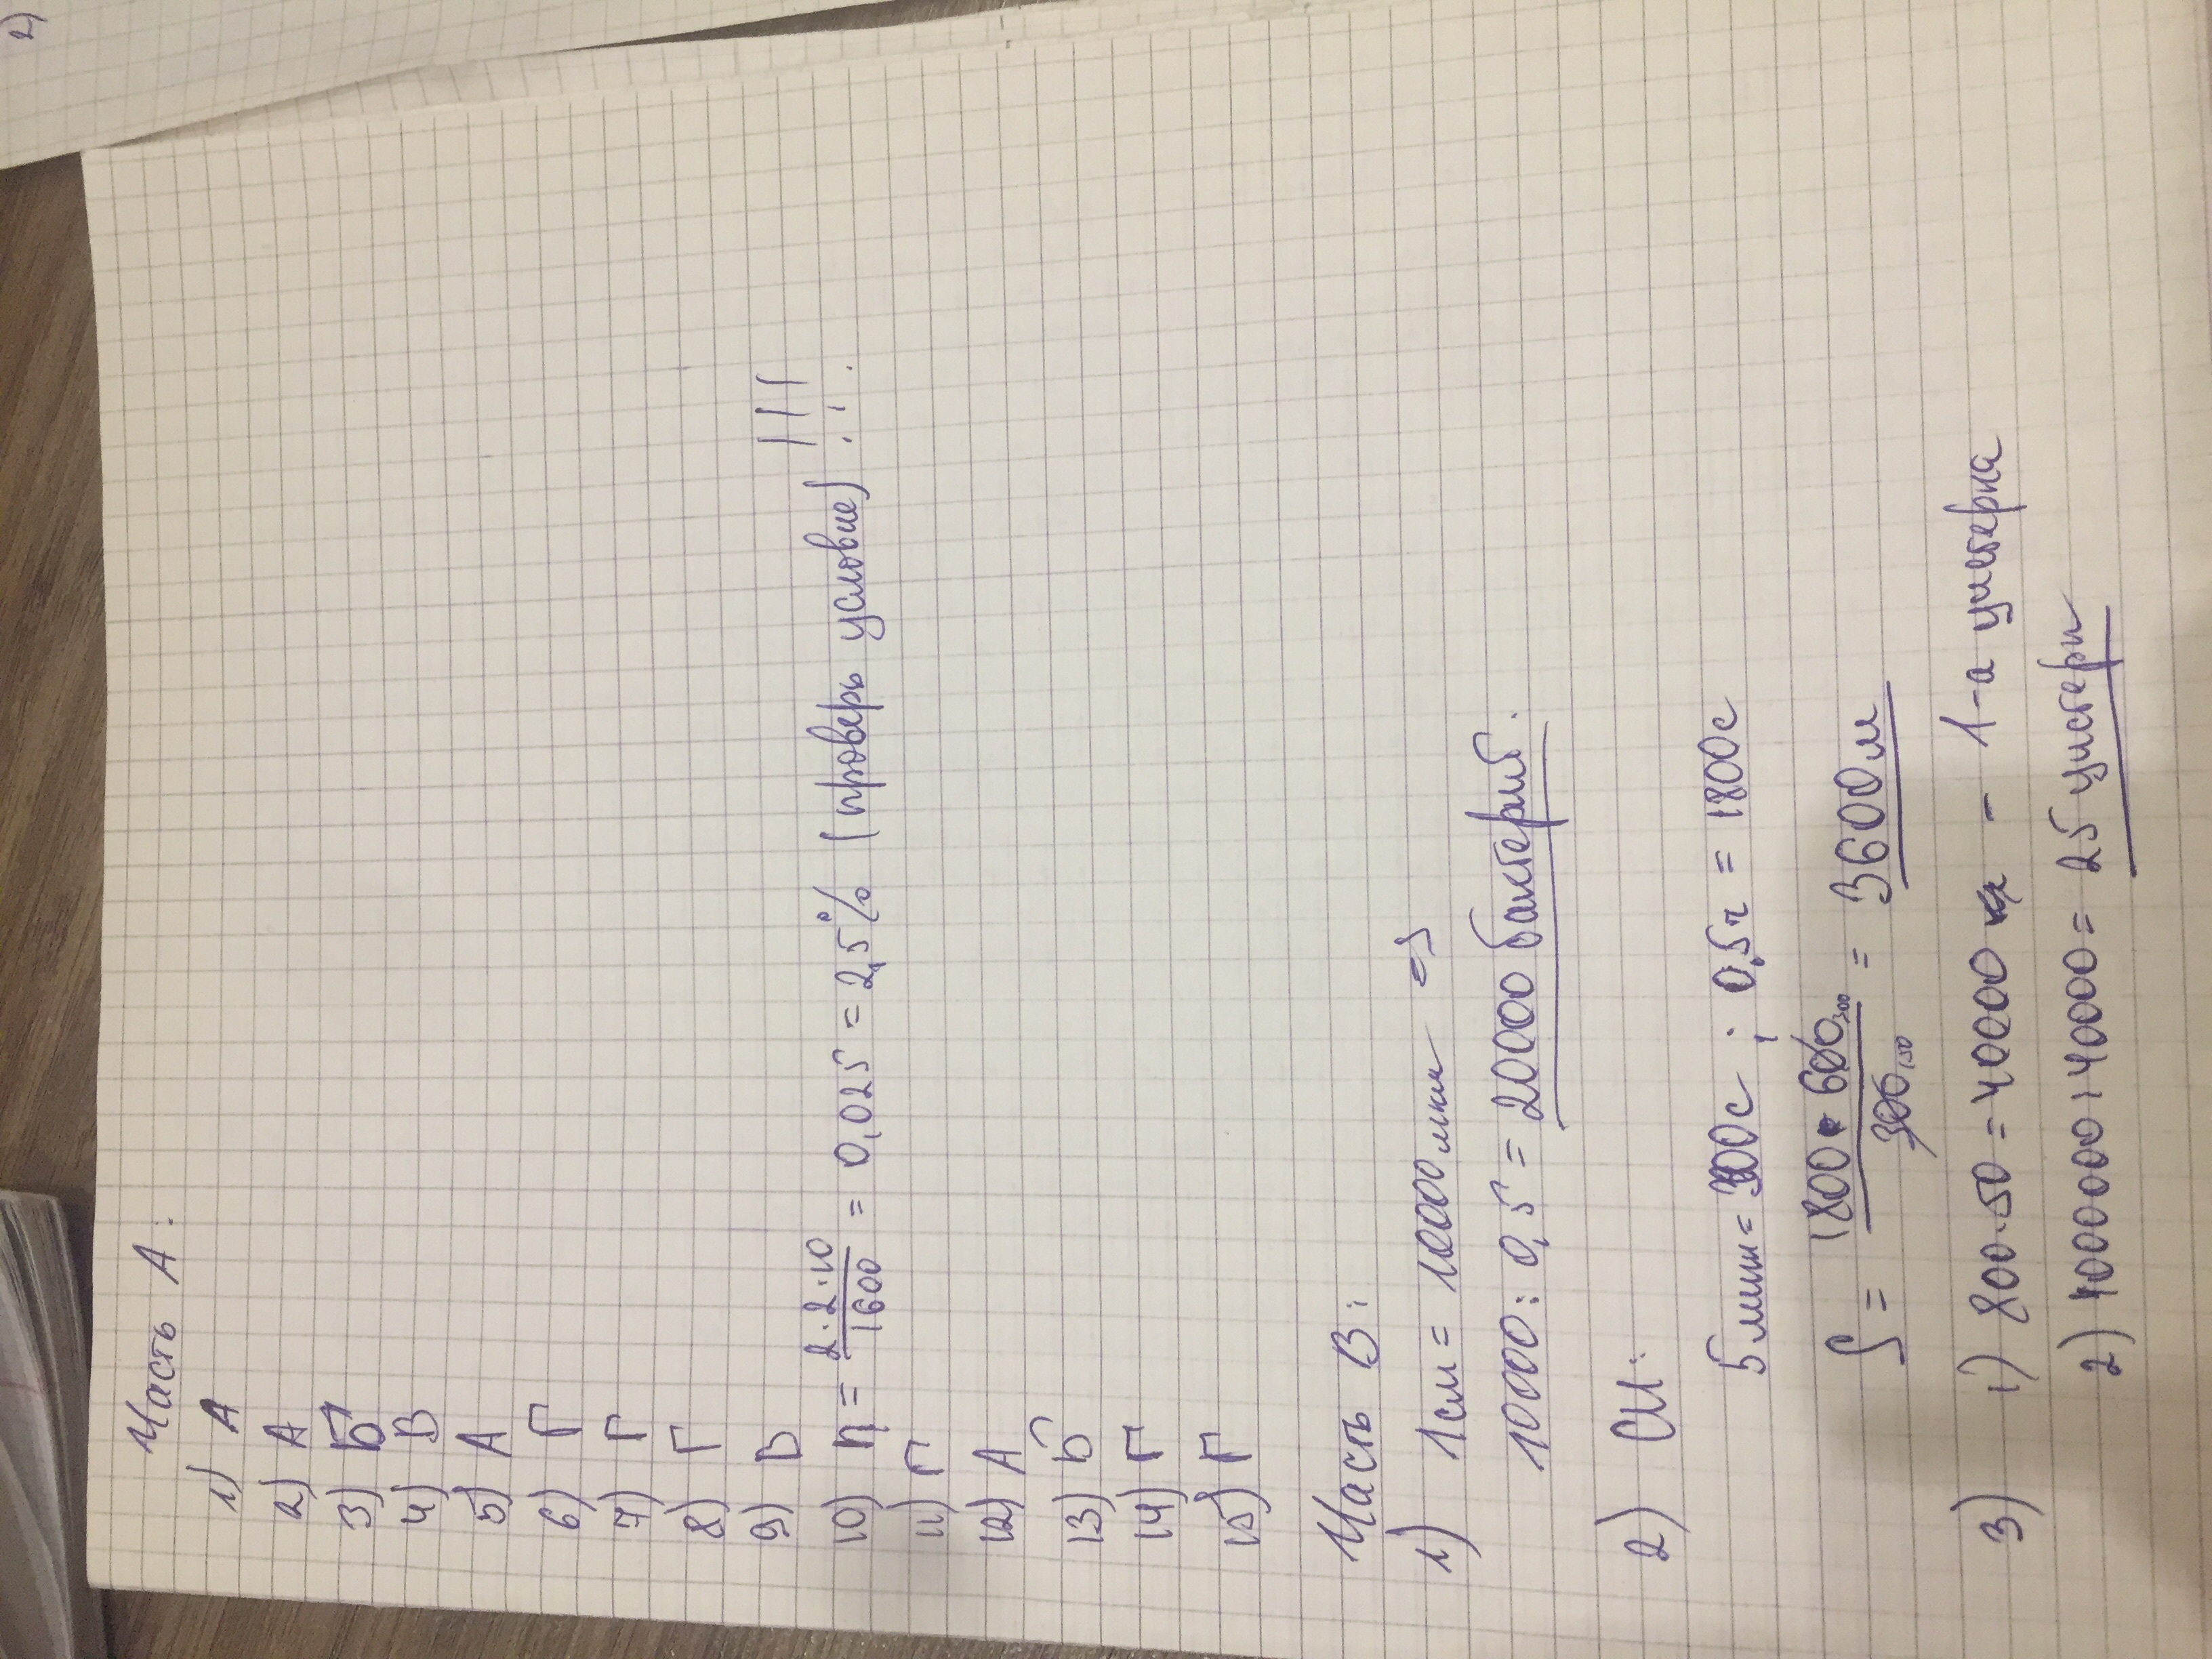 2)
Часть А:
1) А
2) А
3) Б
4) В
5) А
6) Г
7) Г
8) Г
9) В
10) η = 2·2·10/1600 = 0,025 = 2,5% (проверь условие) !!!
11) Г
12) А
13) Б
14) Г
15) Г
Часть В:
1) 1см = 10000 мкм
10000 : 0,5 = 20000 бактерий.
2) СИ:
5 мин = 300с ; 0,5ч = 1800с
S = 1800 · 600 300 / 300 150 = 3600м
3) 1) 800·50 = 40000 - 1-а цистерна
2) 1000000 : 40000 = 25 цистерн